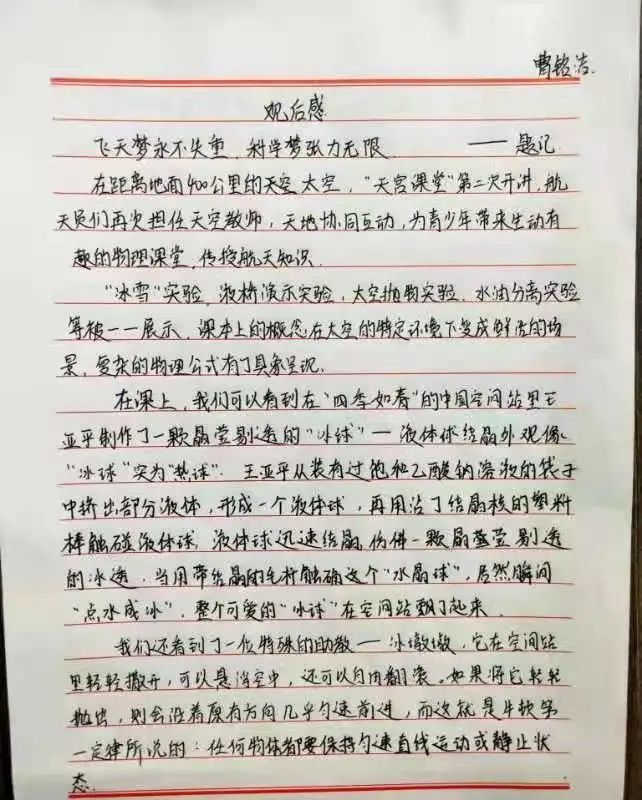 曹铭洁.
观后感
飞天梦永不失重,科学梦张力无限 —— 题记
在距离地面400公里的天空太空,“天宫课堂”第二次开讲,航
天员们再次担任天空教师,天地协同互动,为青少年带来生动有
趣的物理课堂,传授航天知识.
“冰雪”实验,液桥演示实验,太空抛物实验,水油分离实验
等被一一展示,课本上的概念在太空的特定环境下变成鲜活的场
景,复杂的物理公式有了具象呈现.
在课上,我们可以看到在“四季如春”的中国空间站里王
亚平制作了一颗晶莹剔透的“冰球”—液体球结晶外观偶
“冰球”实为“热球”.王亚平从装有过饱和乙酸钠溶液的袋子
中挤出部分液体,形成一个液体球,再用沾了结晶核的塑料
棒触碰液体球,液体球迅速结晶,仿佛一颗晶莹剔透
的冰透.当用带结晶的毛杆触碰这个“水晶球”,居然瞬间
“点水成冰”,整个可爱的“冰球”在空间站飘了起来
我们还看到了一位特殊的助教—冰墩墩,它在空间站
里轻轻撒开,可以悬浮空中,还可以自由翻滚.如果将它轻轻
抛出,则会沿着原有方向几乎匀速前进,而这就是牛顿第
一定律所说的:任何物体都要保持匀速直线运动或静止状
态.